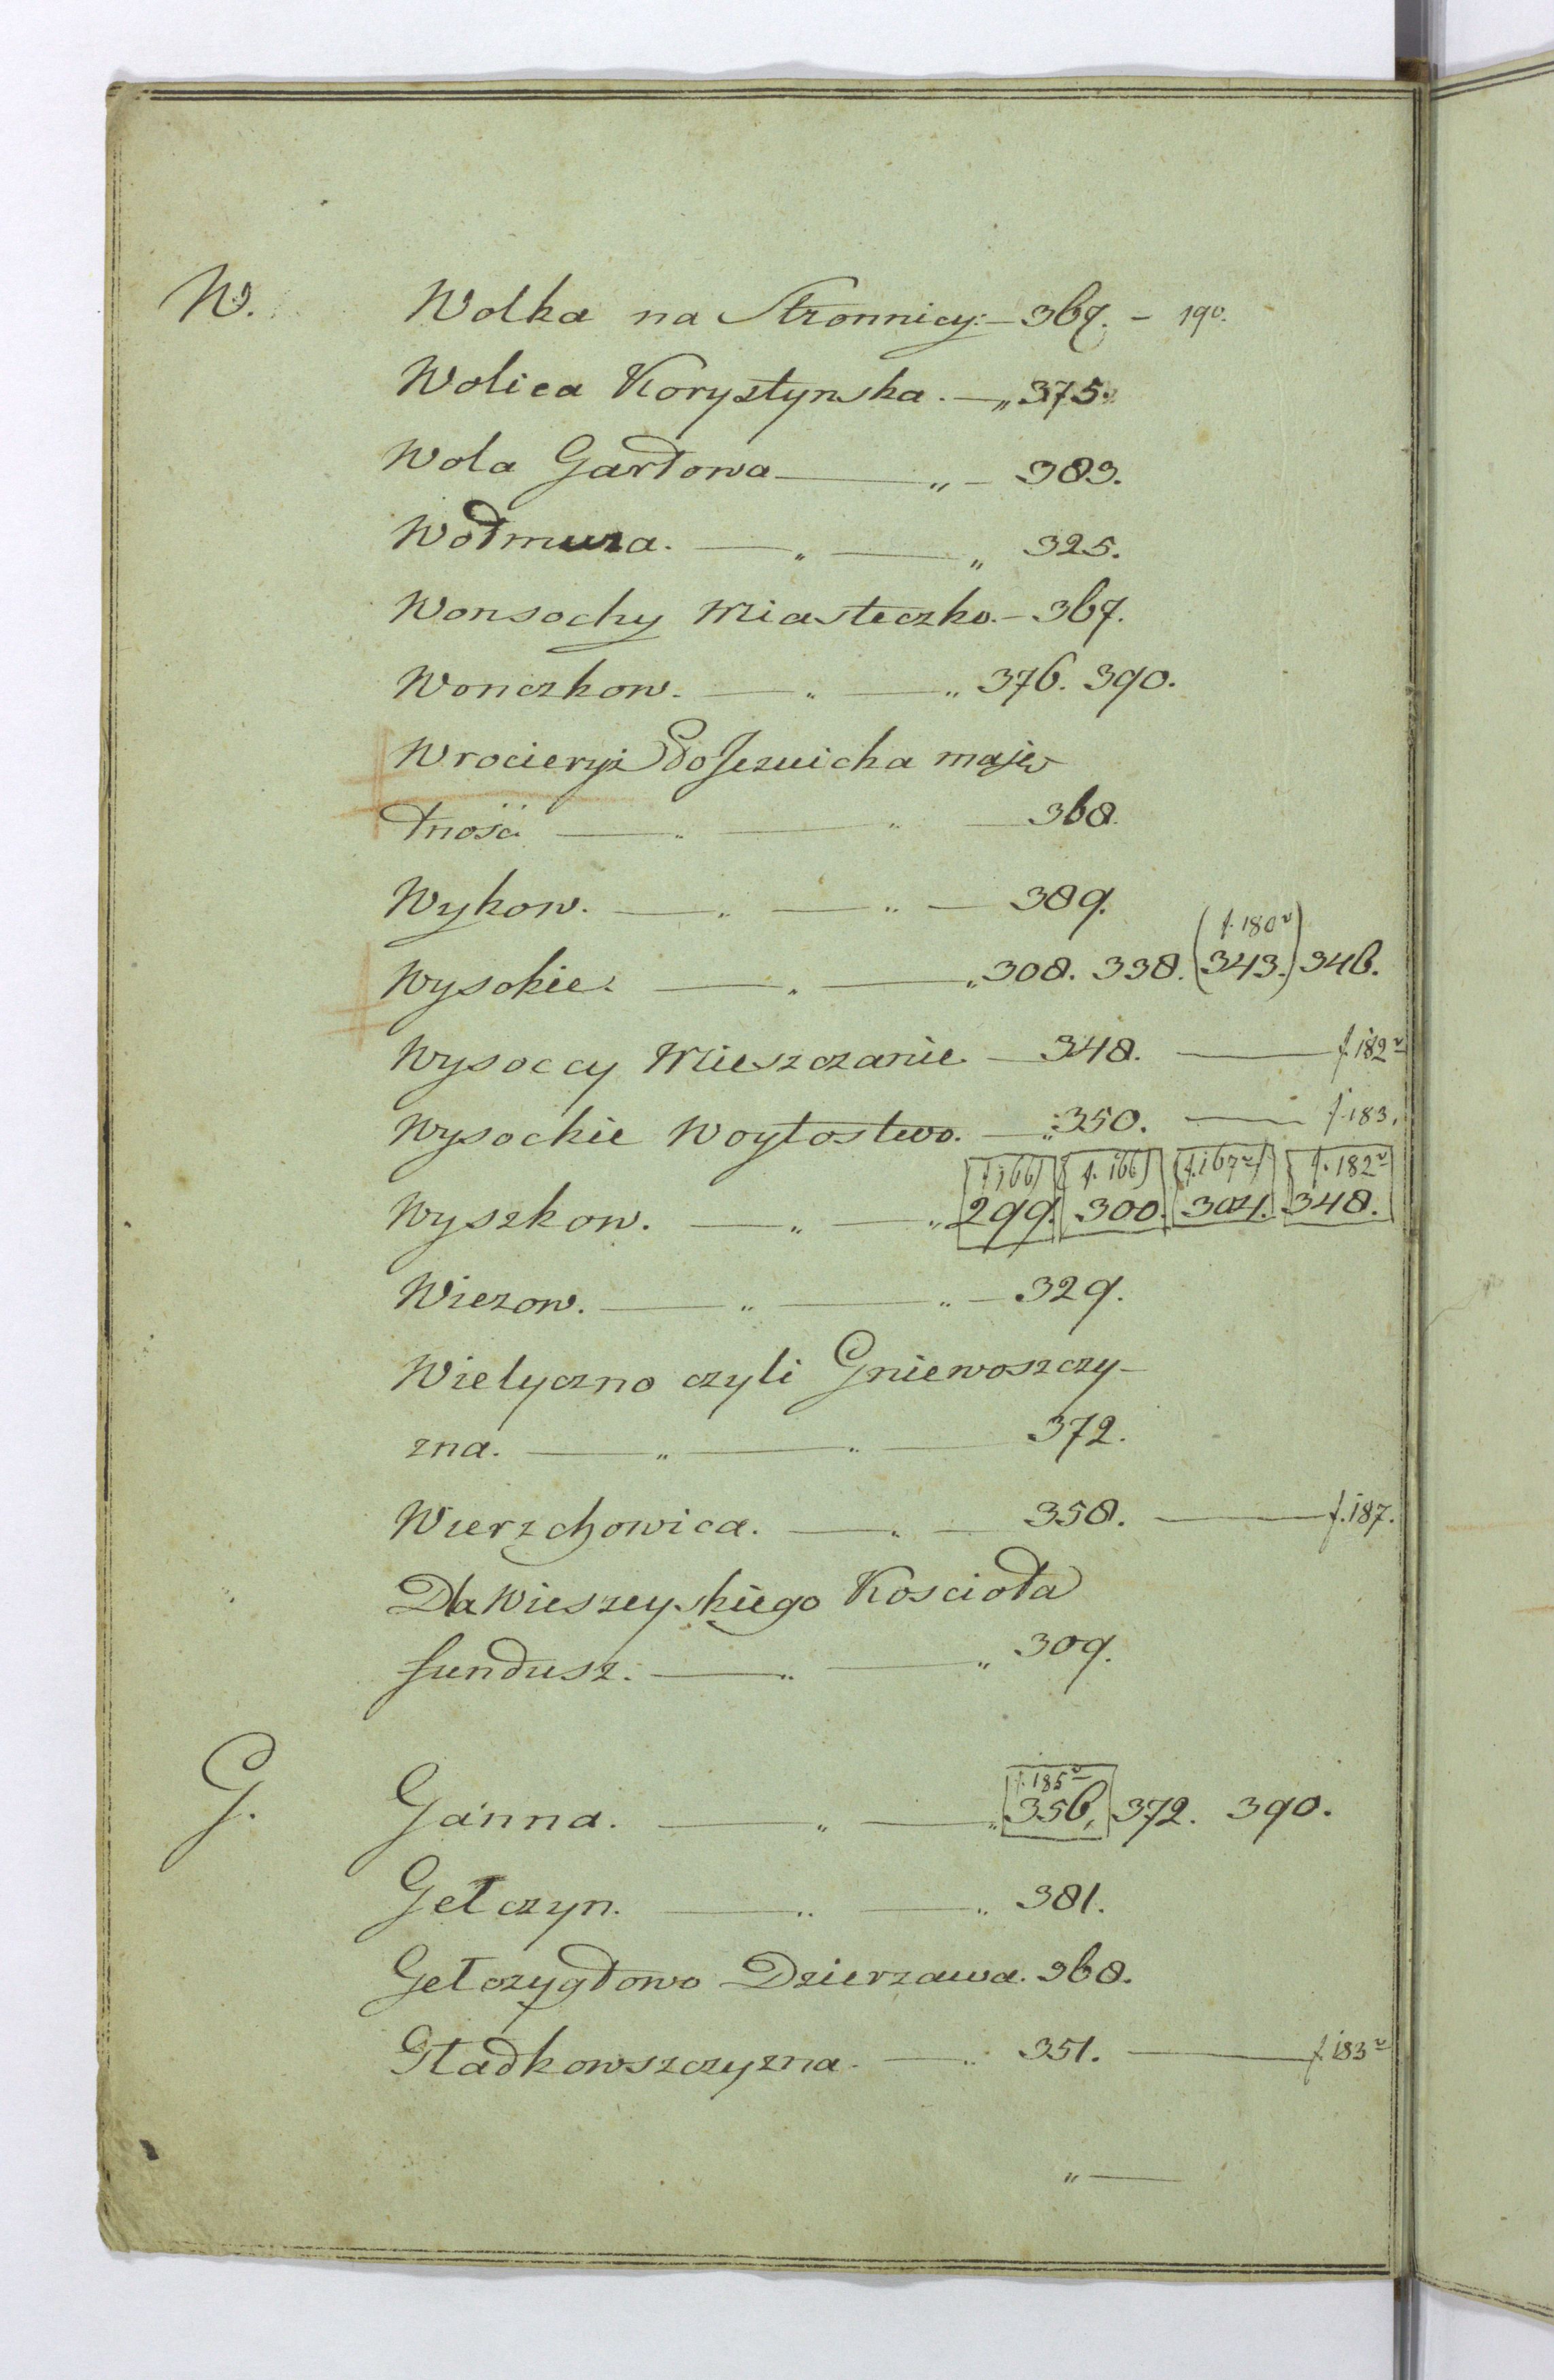 W. Wolka na Stronnicy: — 367. – 190.
Wolica Korystynska. — „ 375.
Wola Gardowa — „ – 383.
Wodmura. — „ — „ 325.
Wonsochy Miasteczko. – 367.
Wonczkow. — „ — „ 376. 390.
Wrocieryż do Jezuicka maje
tnosci — „ — „ — 368.
Wykow. — „ — „ — 389.
f. 180v
Wysokie. — „ — „ 308. 338. (343.) 346.
Wysoccy Mieszczanie — 348. — f. 182v
Wysockie Woytostwo. — „ 350. — f. 183.
f. 166 f. 166 f. 167v f. 182v
Wyszkow. — „ — „ 299. 300. 304. 348.
Wiezow. — „ — „ — 329.
Wielyczno czyli Gniewoszczy–
zna. — „ — „ — 372.
Wierzchowica. — „ — 358. — f. 187.
Dla Wieszeyskiego Kosciola
fundusz. — „ — „ 309.
f. 185v
G. Ganna. — „ — „ 356, 372. 390.
Gelczyn. — „ — „ 381.
Gelczygdowo Dzierzawa. 368.
Gladkowszczyzna. — „ 351. — f. 183v
„ —